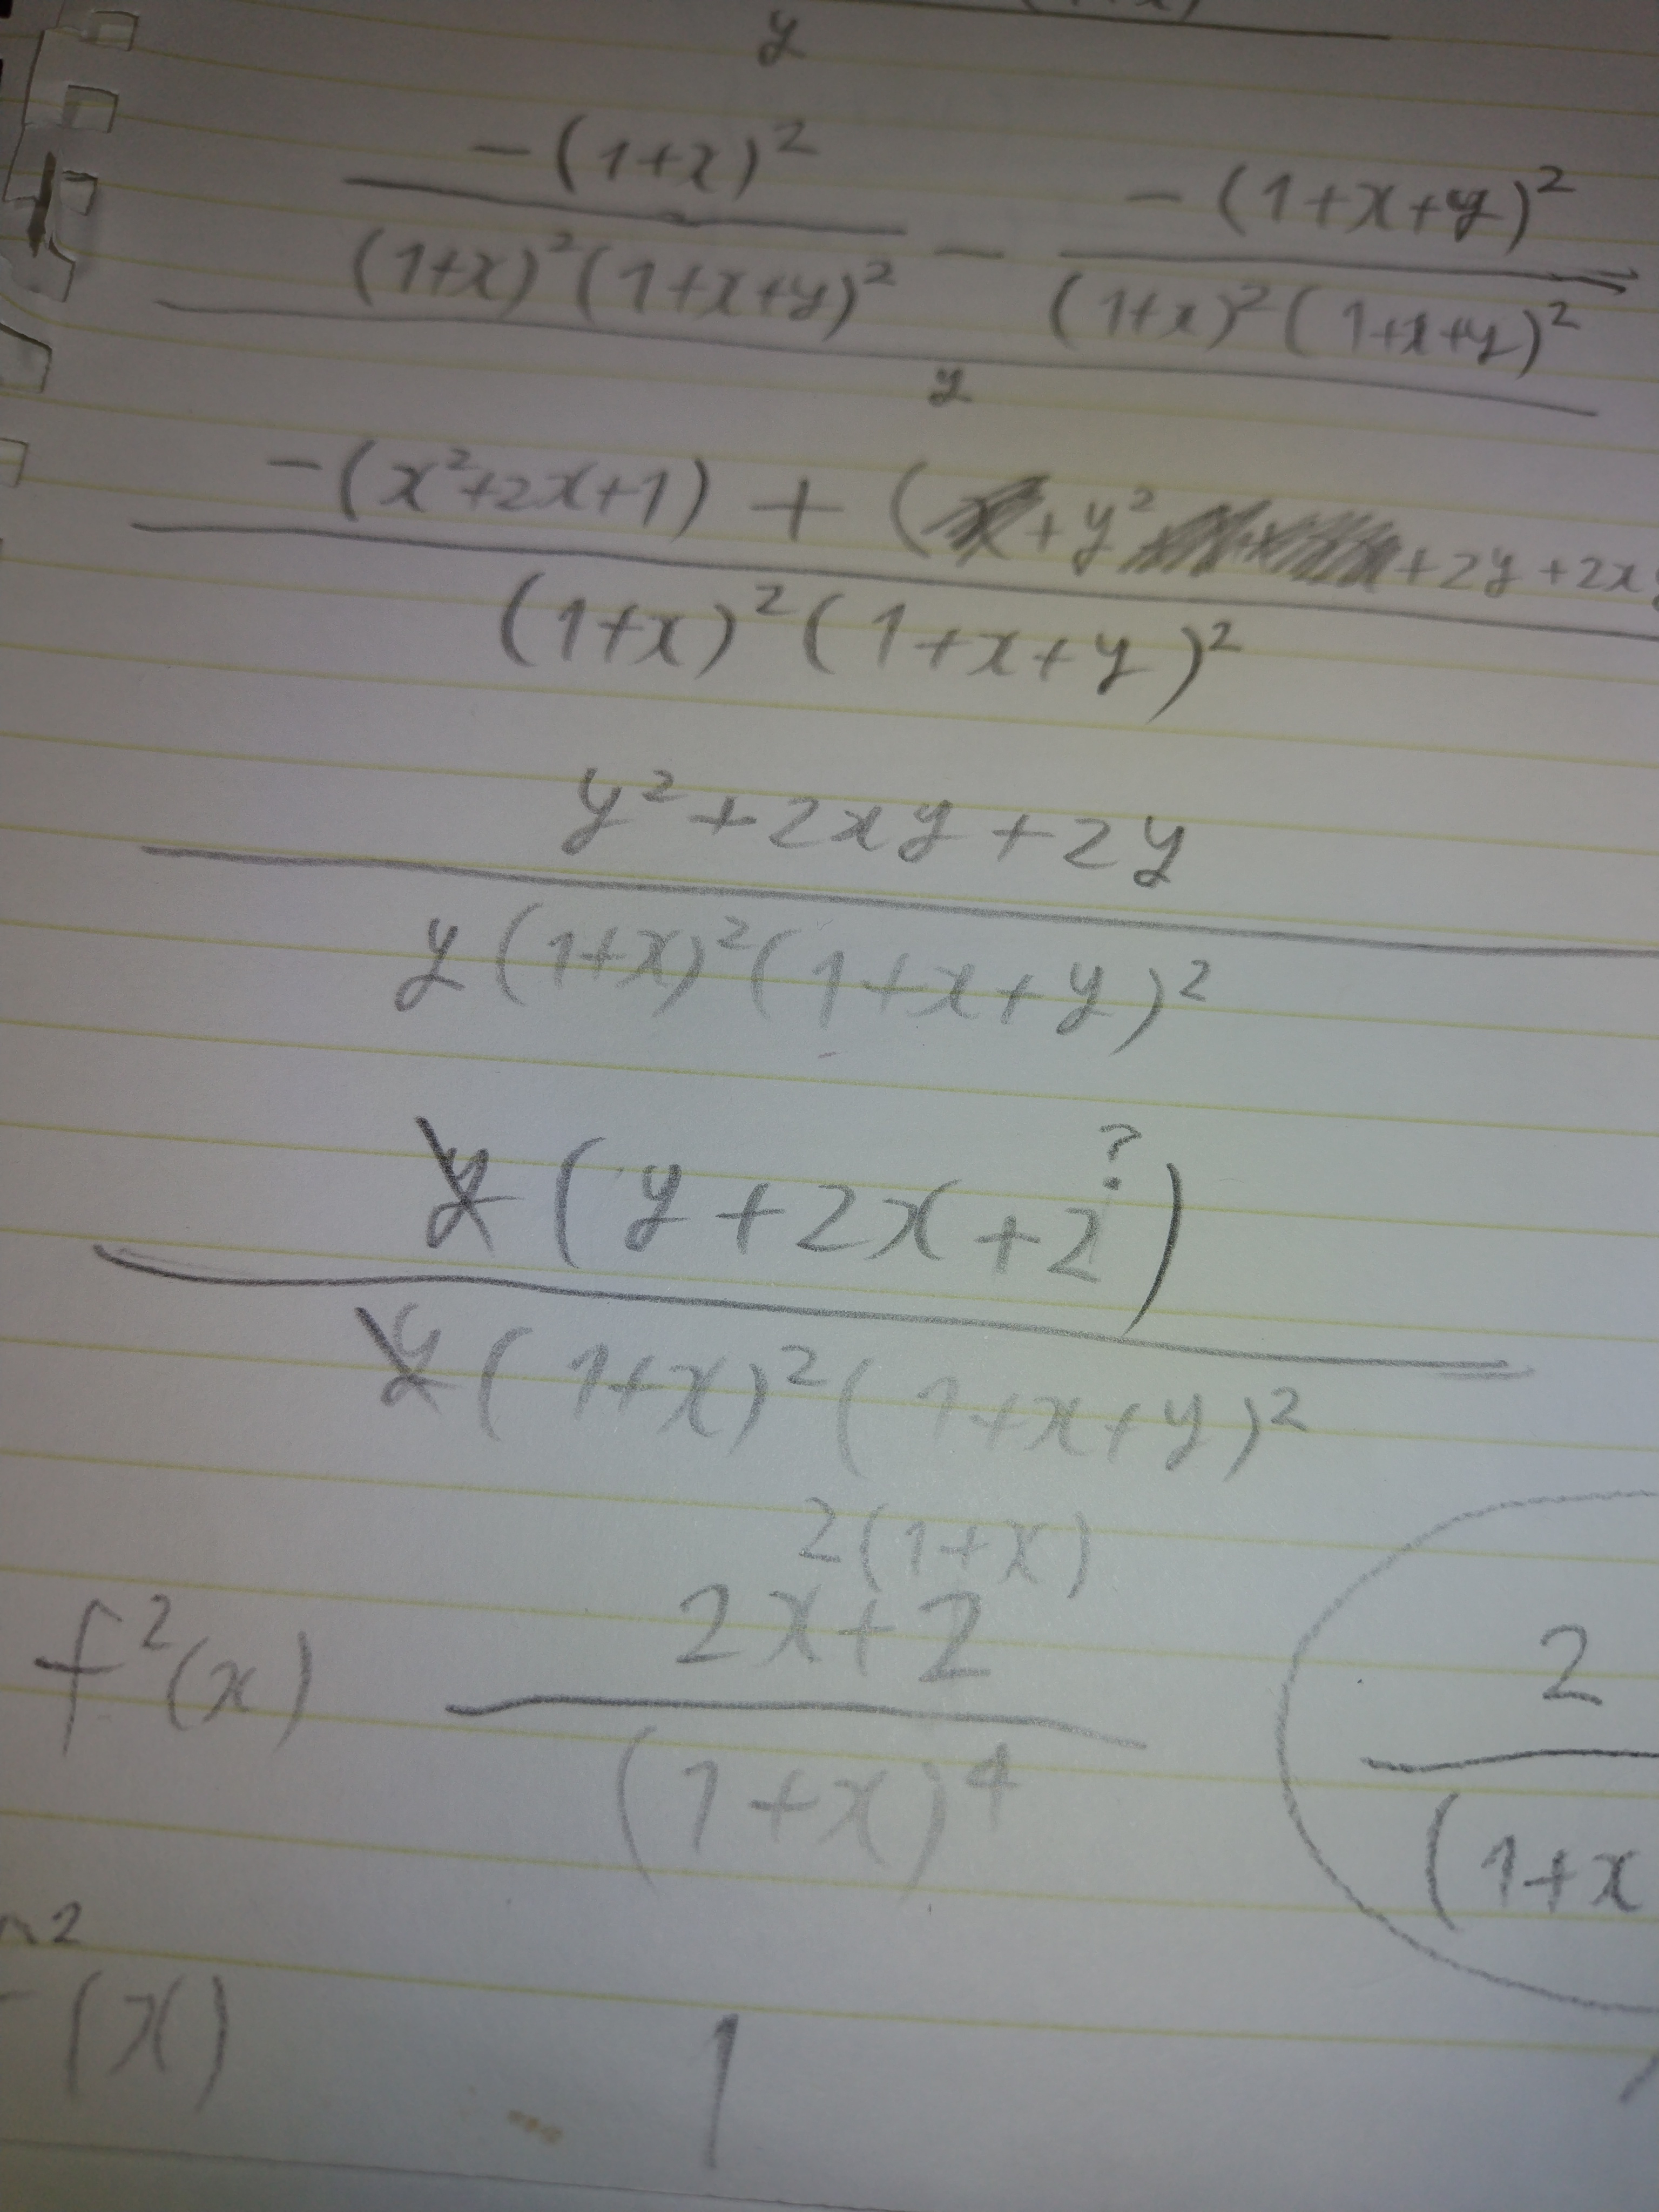 y
-(1+x)² / (1+x)²(1+x+y)² - -(1+x+y)² / (1+x)²(1+x+y)²
y
-(x²+2x+1) + ( + y² +2y+2x
(1+x)²(1+x+y)²
y²+2xy+2y
y(1+x)²(1+x+y)²
?
y(y+2x+2)
y(1+x)²(1+x+y)²
2(1+x)
f²(x) 2x+2 / (1+x)⁴ 2 / (1+x
2
(x) 1